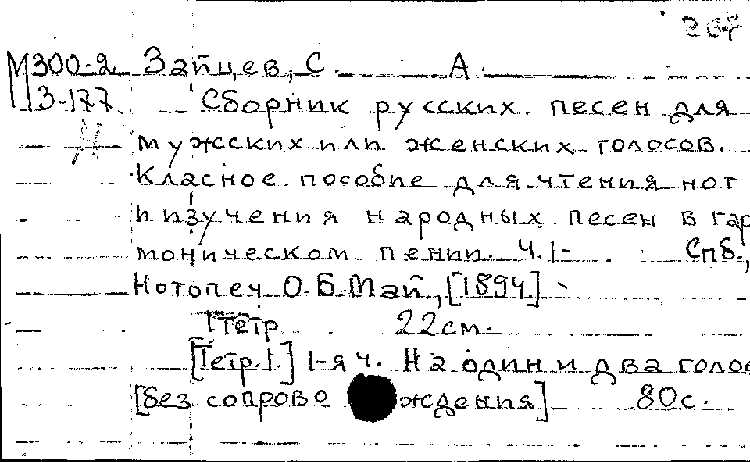 267
М300-2 Зайцев, С. А.
3-177 Сборник русских песен для
мужских или женских голосов.
Класное пособие для чтения нот
и изучения народных песен в гар
моническом пении. Ч. 1- Спб.,
Нотопеч О.Б.Май, [1894.]
1 тетр 22см.
[Тетр 1.] 1-я ч. На один и два голос
[без сопрово ждения] 80с.